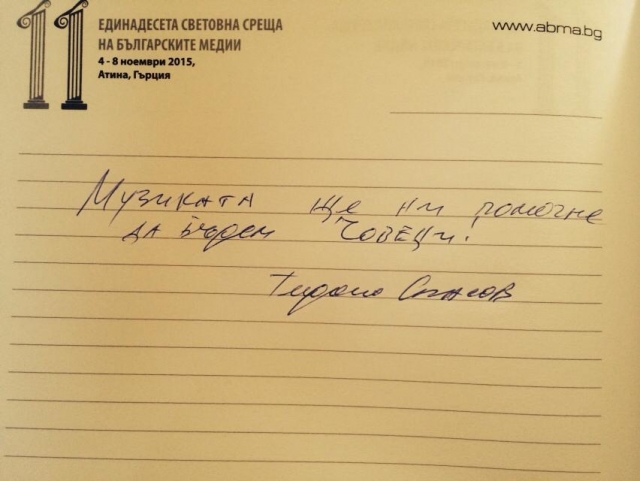 11
ЕДИНАДЕСЕТА СВЕТОВНА СРЕЩА
НА БЪЛГАРСКИТЕ МЕДИИ
4 - 8 ноември 2015,
Атина, Гърция
www.abrna.bg
Музиката ще ни помогне
да бъдем човеци!
Теодосий Спасов